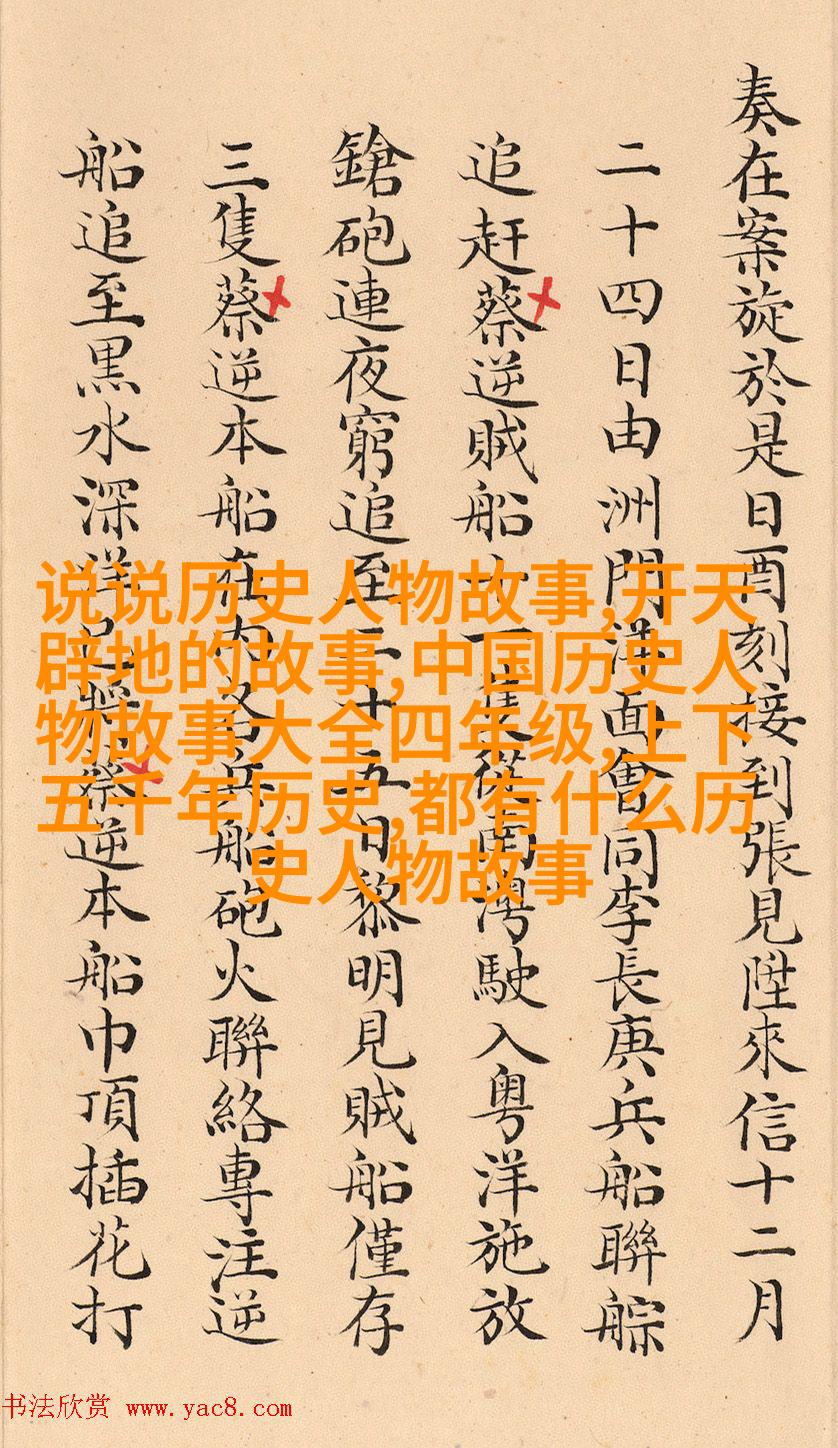 奏在案旋於是日酉刻接到張見陞來信十二月
二十四日由洲門洋面會同李長庚兵船聯䑸
追赶蔡逆賊船十一隻從南駛入粤洋施放
鎗砲連夜窮追至二十五日黎明見賊船僅存
三隻蔡逆本船在內各兵船砲火聯絡專注逆
船追至黒水深洋已將蔡逆本船巾頂插花打
说说历史人物故事,开天
辟地的故事,中国历史人
物故事大全四年级,上下
五千年历史,都有什么历
史人物故事
书法欣赏 www.yac8.com